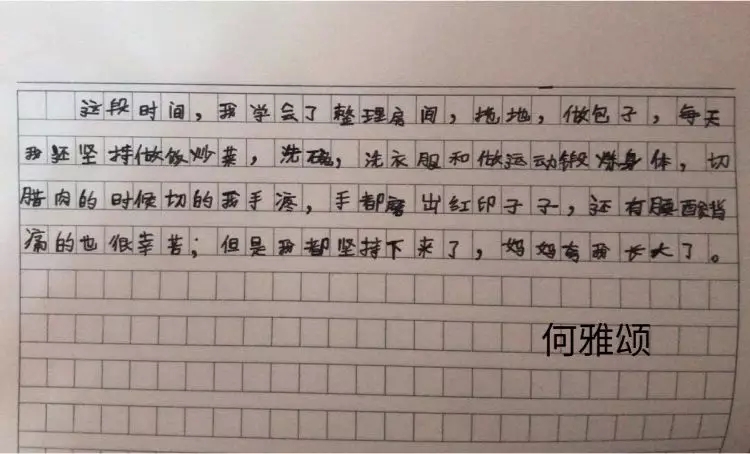 这段时间，我学会了整理房间，拖地，做包子，每天
我还坚持做饭炒菜，洗碗，洗衣服和做运动锻炼身体，切
腊肉的时候切的我手疼，手都磨出红印子子，还有腰酸背
痛的也很辛苦；但是我都坚持下来了，妈妈有我长大了。
何雅颂